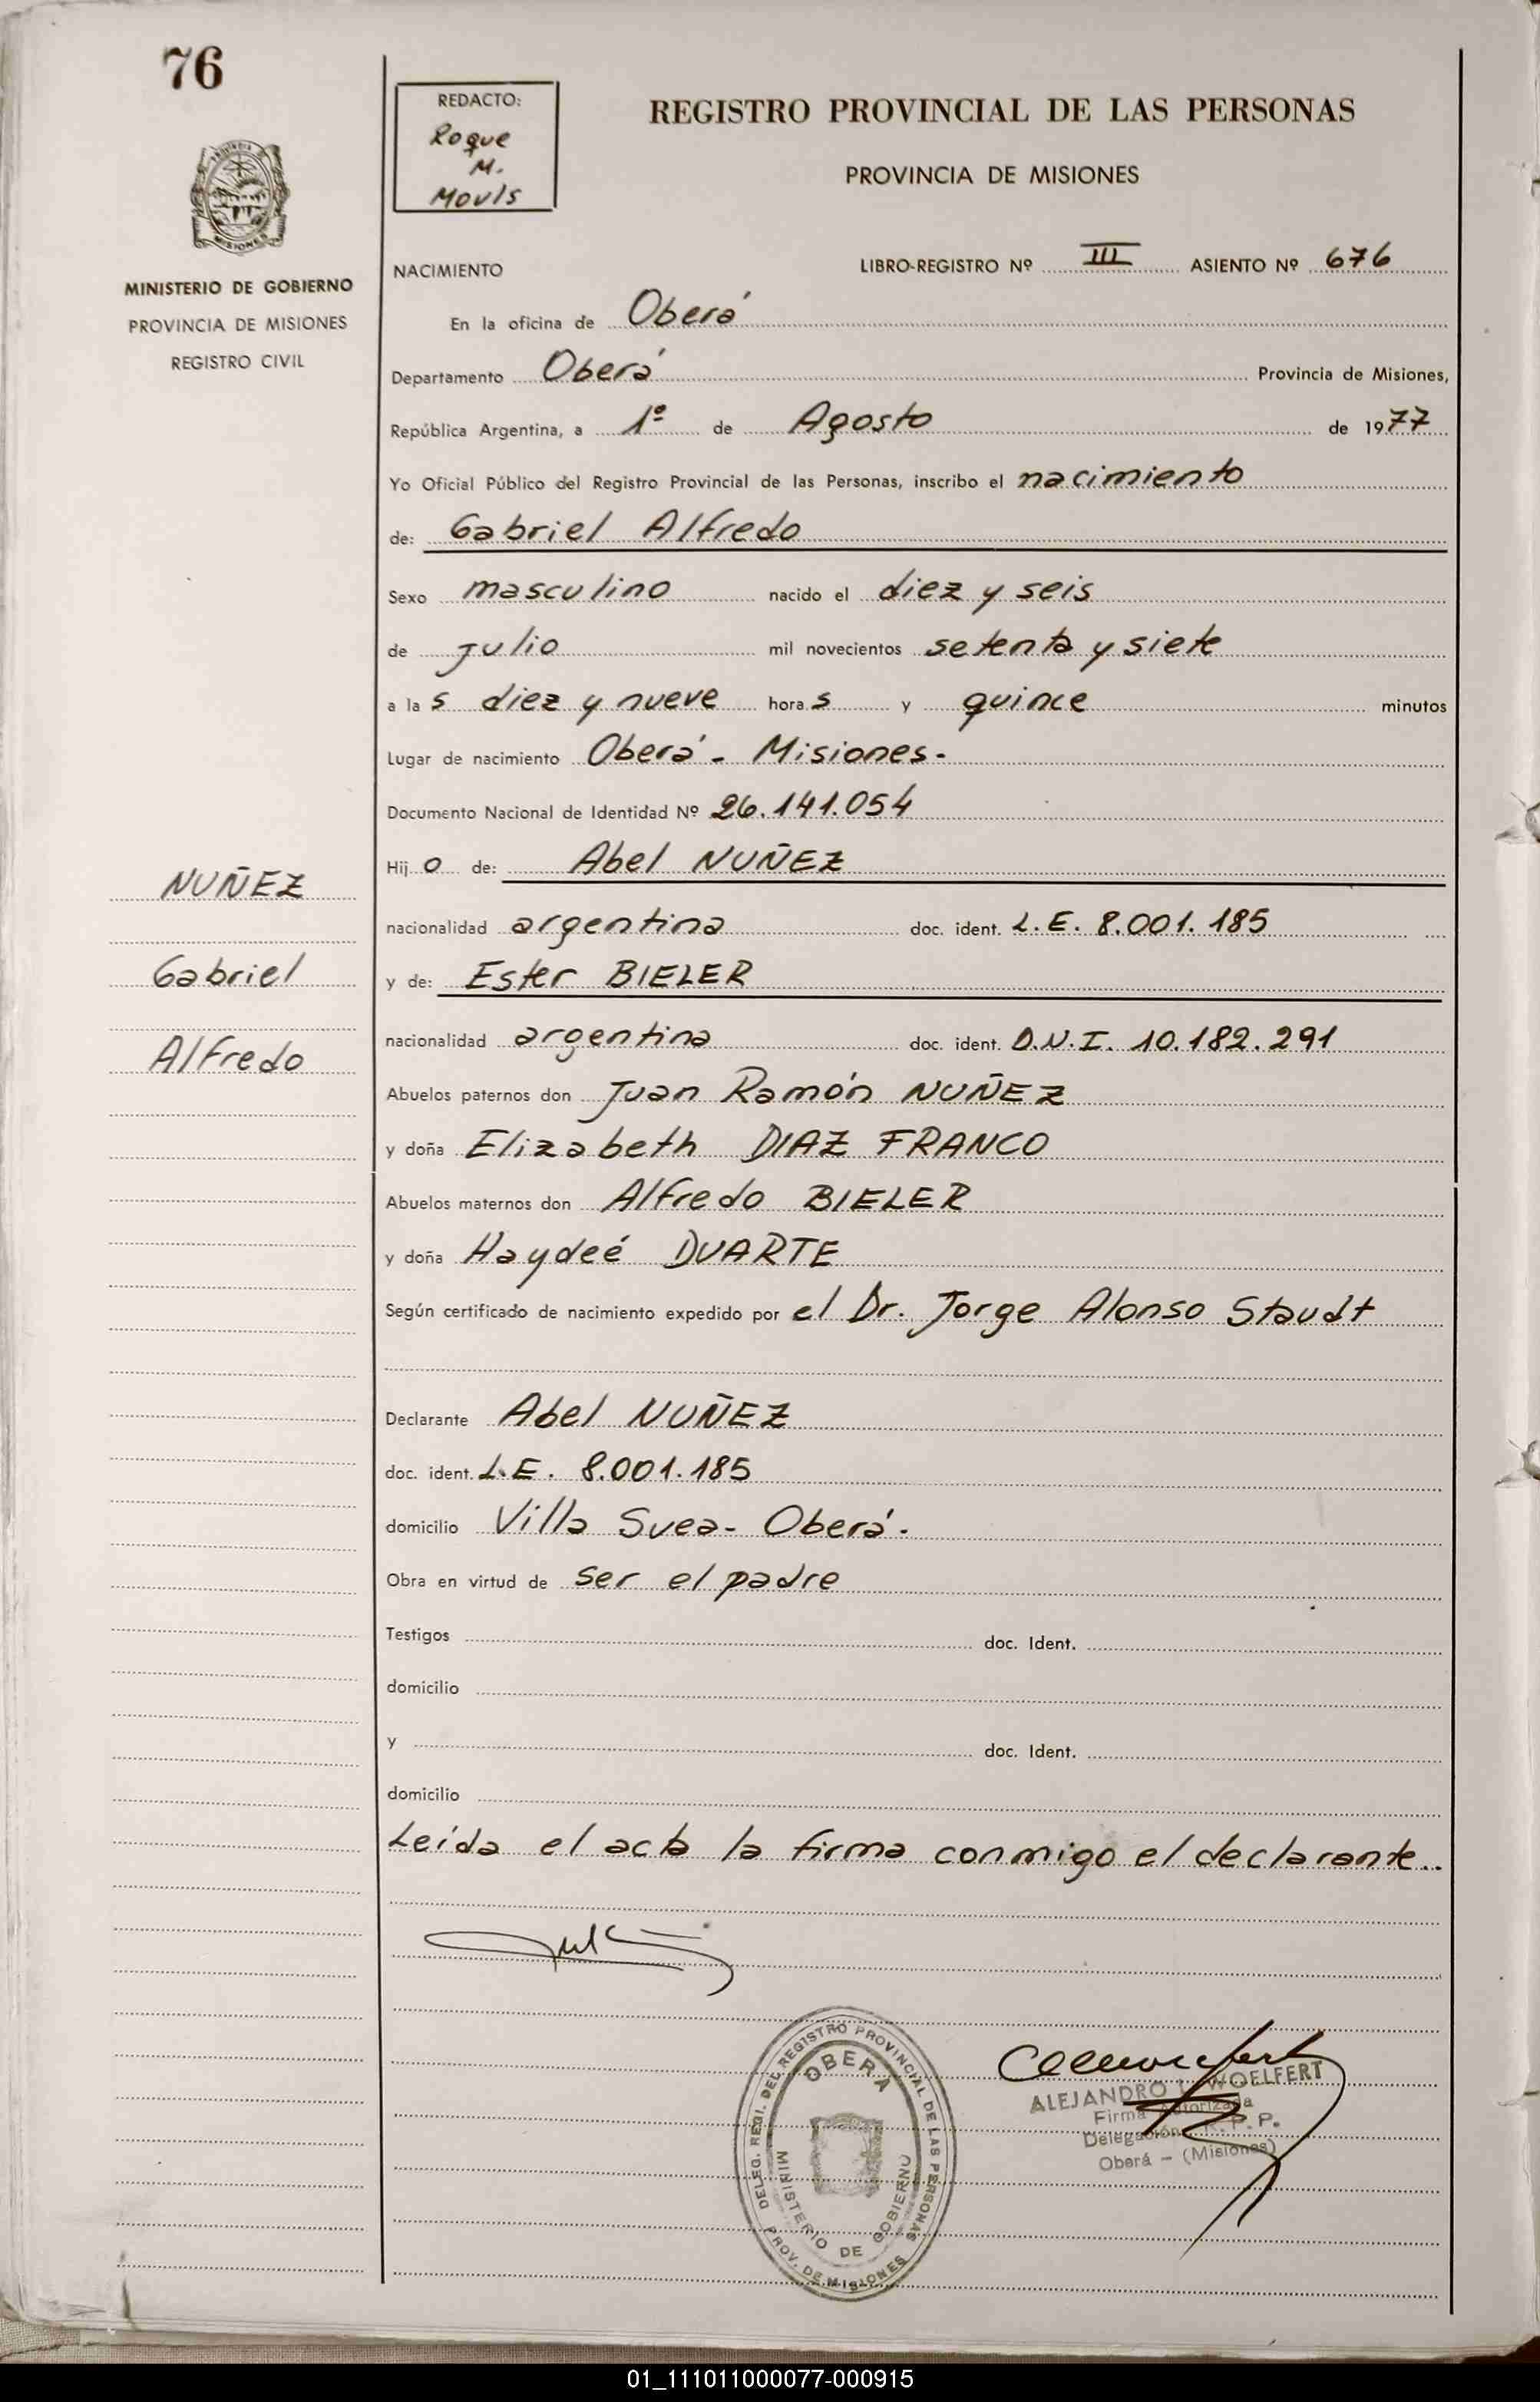 76
REDACTO:
Roque
M.
Movls
REGISTRO PROVINCIAL DE LAS PERSONAS
PROVINCIA DE MISIONES
MISIONES
MINISTERIO DE GOBIERNO
PROVINCIA DE MISIONES
REGISTRO CIVIL
NACIMIENTO
LIBRO-REGISTRO Nº III ASIENTO Nº 676
En la oficina de Oberá
Departamento Oberá Provincia de Misiones,
República Argentina, a 1º de Agosto de 1977
Yo Oficial Público del Registro Provincial de las Personas, inscribo el nacimiento
de: Gabriel Alfredo
Sexo masculino nacido el diez y seis
de julio mil novecientos setenta y siete
a las diez y nueve horas y quince minutos
Lugar de nacimiento Oberá - Misiones-
Documento Nacional de Identidad Nº 26.141.054
Hijo de: Abel NUÑEZ
NUÑEZ
nacionalidad argentina doc. ident. L.E. 8.001.185
Gabriel
y de: Ester BIELER
nacionalidad argentina doc. ident. D.N.I. 10.182.291
Alfredo
Abuelos paternos don Juan Ramón NUÑEZ
y doña Elizabeth DIAZ FRANCO
Abuelos maternos don Alfredo BIELER
y doña Haydeé DUARTE
Según certificado de nacimiento expedido por el Dr. Jorge Alonso Staudt
Declarante Abel NUÑEZ
doc. ident. L.E. 8.001.185
domicilio Villa Svea- Oberá-
Obra en virtud de ser el padre
Testigos doc. Ident.
domicilio
y doc. Ident.
domicilio
Leída el acta la firma conmigo el declarante..
DELEG. REGI. DEL REGISTRO PROVINCIAL DE LAS PERSONAS
OBERA
MINISTERIO DE GOBIERNO
PROV. DE MISIONES
ALEJANDRO WOELFERT
Firma Autorizada
Delegación R.P.P.
Oberá - (Misiones)
01_111011000077-000915